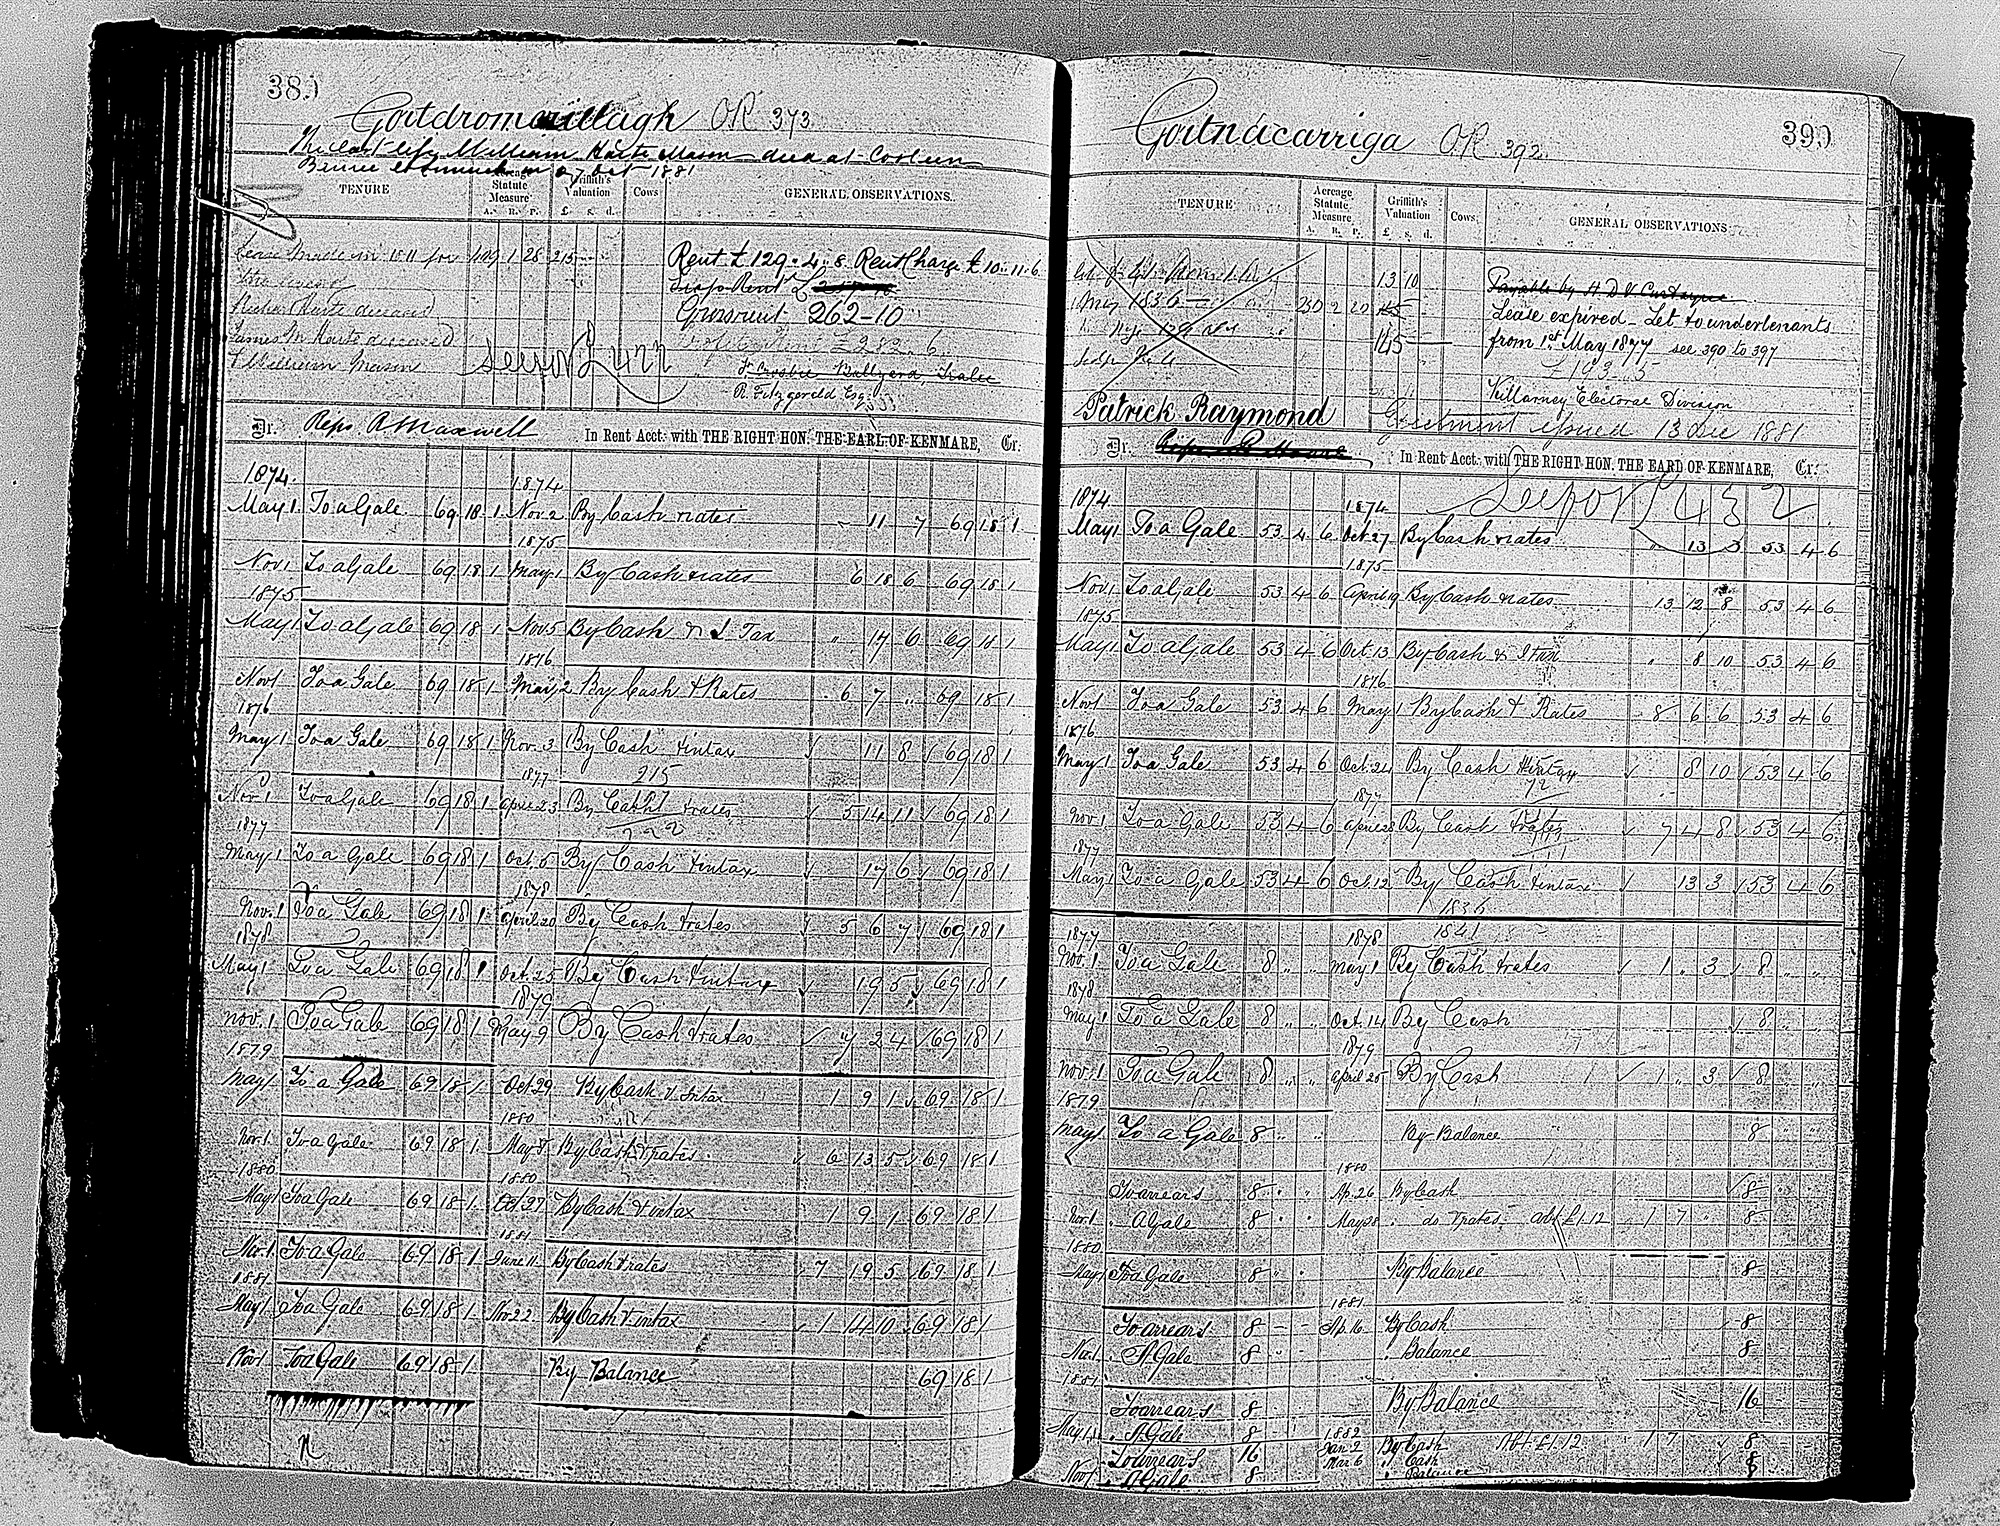 38
OR 373
The last life William Harte Mason died at
27 Oct 1881
TENURE
Acreage Statute Measure
A. R. P.
Griffith's Valuation
£ s. d.
Cows
GENERAL OBSERVATIONS.
Lease made in for 1 28 215
Rent £ 129 " 4 " 8 Rent Charge £ 10 " 11 " 6
Rent £
262-10
Harte deceased
James M Harte deceased
William Mason
see for 477
F Crosbie Ballyard, Tralee
R. Fitzgerald Esq
Dr. Reps R Maxwell In Rent Acct. with THE RIGHT HON. THE EARL OF KENMARE, Cr.
1874 1874
May 1 To a Gale 69 18 1 Nov 2 By Cash rates - 11 7 69 18 1
1875
Nov 1 To a Gale 69 18 1 May 1 By Cash & rates 6 18 6 69 18 1
1875
May 1 To a Gale 69 18 1 Nov 5 By Cash & I Tax " 17 6 69 18 1
1876
Nov 1 To a Gale 69 18 1 May 2 By Cash & Rates 6 7 " 69 18 1
1876
May 1 To a Gale 69 18 1 Nov. 3 By Cash & intax 11 8 69 18 1
1877 215
Nov. 1 To a Gale 69 18 1 April 23 By Cash & rates 5 14 11 69 18 1
1877 222
May 1 To a Gale 69 18 1 Oct. 5 By Cash & intax 17 6 69 18 1
1878
Nov. 1 To a Gale 69 18 1 April 20 By Cash & rates 5 6 7 69 18 1
1878
May 1 To a Gale 69 18 1 Oct. 25 By Cash & intax 19 5 69 18 1
1879
Nov. 1 To a Gale 69 18 1 May 9 By Cash & rates 7 2 4 69 18 1
1879
May 1 To a Gale 69 18 1 Oct. 29 By Cash & intax 1 9 1 69 18 1
1880
Nov. 1 To a Gale 69 18 1 May 8 By Cash & rates 6 13 5 69 18 1
1880 1880
May 1 To a Gale 69 18 1 Oct. 27 By Cash & intax 1 9 1 69 18 1
1881
Nov. 1 To a Gale 69 18 1 June 11 By Cash & rates 7 19 5 69 18 1
1881
May 1 To a Gale 69 18 1 Nov 22 By Cash & intax 1 14 10 69 18 1
Nov 1 To a Gale 69 18 1 By Balance 69 18 1
Gortnacarriga OR 392
39
TENURE
Acreage Statute Measure
A. R. P.
Griffith's Valuation
£ s. d.
Cows.
GENERAL OBSERVATIONS
13 10
Payable by H D V
May 1836
Lease expired - Let to undertenants
145
from 1st May 1877 see 390 to 397
Killarney Electoral Division
Patrick Raymond
Ejectment issued 13 Dec 1881
Dr. In Rent Acct. with THE RIGHT HON. THE EARL OF KENMARE, Cr.
see for 432
1874 1874
May 1 To a Gale 53 4 6 Oct 27 By Cash rates " 13 3 53 4 6
1875
Nov 1 To a Gale 53 4 6 April 19 By Cash & rates 13 12 8 53 4 6
1875
May 1 To a Gale 53 4 6 Oct. 13 By Cash & I tax " 8 10 53 4 6
1876
Nov 1 To a Gale 53 4 6 May 1 By Cash & Rates 8 6 6 53 4 6
1876
May 1 To a Gale 53 4 6 Oct. 24 By Cash & intax 8 10 53 4 6
1877 72
Nov. 1 To a Gale 53 4 6 April 28 By Cash & rates 7 4 8 53 4 6
1877
May 1 To a Gale 53 4 6 Oct. 12 By Cash & intax 13 3 53 4 6
1836
1877 1878 1841
Nov. 1 To a Gale 8 " " May 1 By Cash & rates 1 " 3 8 " "
1878
May 1 To a Gale 8 " " Oct. 14 By Cash 8 " "
1879
Nov. 1 To a Gale 8 " " April 25 By Cash 1 " 3 8 " "
1879
May 1 To a Gale 8 " " By Balance 8 " "
1880
To arrears 8 " " Ap. 26 By Cash 8
Nov. 1 " A Gale 8 " " May 28 " do & rates 1 7 " 8
1880
May 1 To a Gale 8 " " By Balance 8
1881
To arrears 8 - - Ap. 16 By Cash 8
Nov. 1 " A Gale 8 " " " Balance 8
1881
To arrears 8 By Balance 16
May 1 " A Gale 8 1882
To arrears 16 Jan 2 By Cash Abt £1.12 1 7 8
Nov 1 " A Gale 8 Mar. 6 " Cash 8
" Balance 8